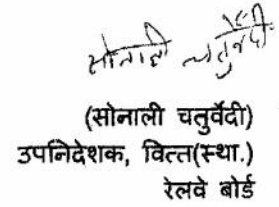 सोनाली चतुर्वेदी
(सोनाली चतुर्वेदी)
उपनिदेशक, वित्त(स्था.)
रेलवे बोर्ड